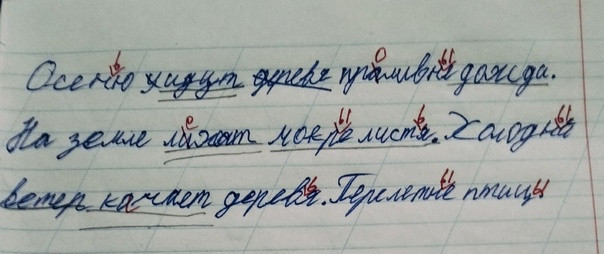 Осеню хидут деревя праливня дожда.
На земле лижат мокре листя. Холодна
ветер качает деревя. Перелетне птицы